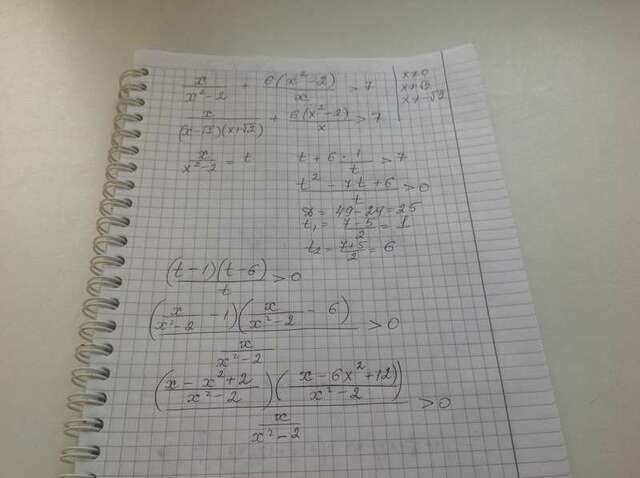 x/(x²-2) + 6(x²-2)/x > 7
x≠0
x≠√2
x≠-√2
x/((x-√2)(x+√2)) + 6(x²-2)/x > 7
x/(x²-2) = t
t + 6 · 1/t > 7
(t² - 7t + 6)/t > 0
D = 49 - 24 = 25
t₁ = (7-5)/2 = 1
t₂ = (7+5)/2 = 6
(t-1)(t-6)/t > 0
(x/(x²-2) - 1)(x/(x²-2) - 6) / (x/(x²-2)) > 0
((x - x² + 2)/(x² - 2))((x - 6x² + 12)/(x² - 2)) / (x/(x² - 2)) > 0